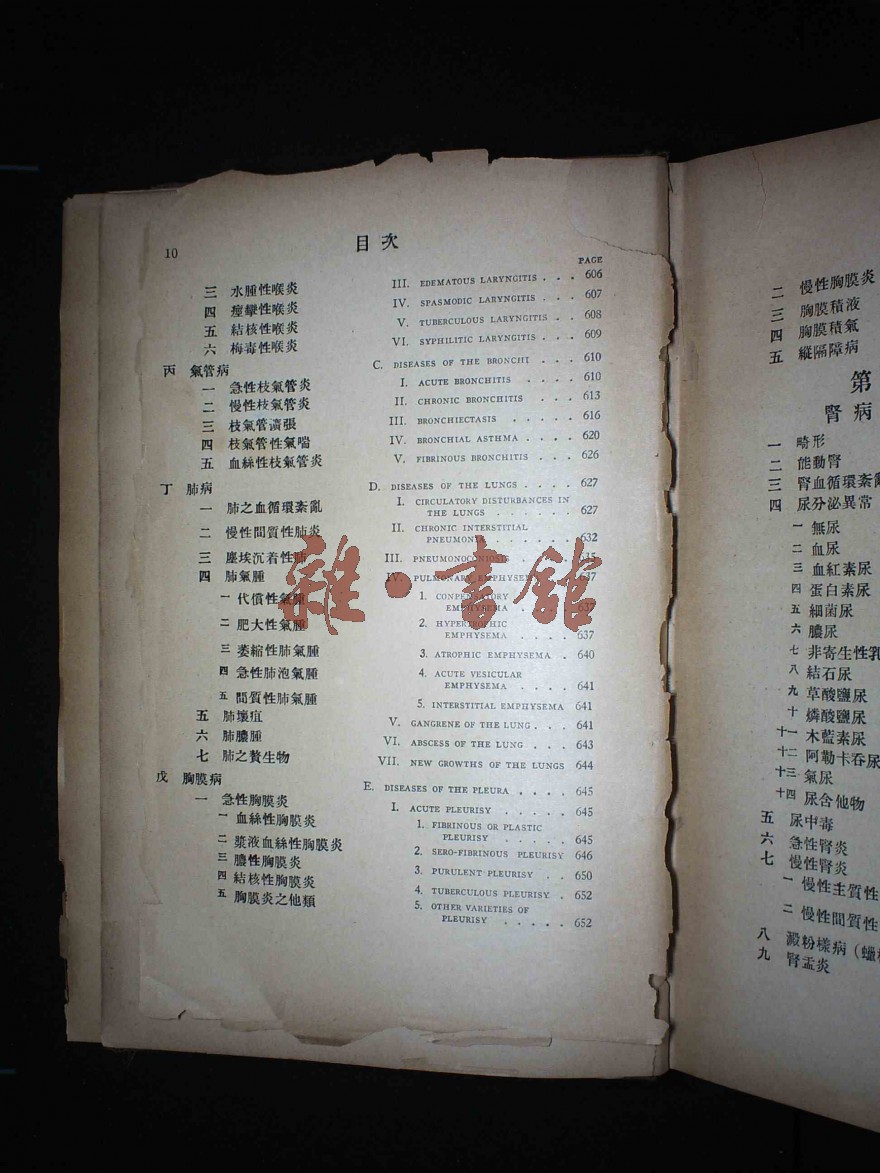 10
目次
PAGE
三 水腫性喉炎 III. EDEMATOUS LARYNGITIS . . . 606
四 痙攣性喉炎 IV. SPASMODIC LARYNGITIS . . . 607
五 結核性喉炎 V. TUBERCULOUS LARYNGITIS . . 608
六 梅毒性喉炎 VI. SYPHILITIC LARYNGITIS . . . 609
丙 氣管病 C. DISEASES OF THE BRONCHI . . . 610
一 急性枝氣管炎 I. ACUTE BRONCHITIS . . . . 610
二 慢性枝氣管炎 II. CHRONIC BRONCHITIS . . . . 613
三 枝氣管張 III. BRONCHIECTASIS . . . . . 616
四 枝氣管性氣喘 IV. BRONCHIAL ASTHMA . . . . 620
五 血絲性枝氣管炎 V. FIBRINOUS BRONCHITIS . . . 626
丁 肺病 D. DISEASES OF THE LUNGS . . . . 627
一 肺之血循環紊亂 I. CIRCULATORY DISTURBANCES IN
THE LUNGS . . . . . 627
二 慢性間質性肺炎 II. CHRONIC INTERSTITIAL
PNEUMON 632
三 塵埃沉着性肺 III. PNEUMONOCONIOSIS 635
四 肺氣腫 IV. PULMONARY EMPHYSEM 637
一 代償性氣腫 1. CONPENSATORY
EMPHYSEMA . . . . 637
二 肥大性氣腫 2. HYPERTROPHIC
EMPHYSEMA . . . . 637
三 萎縮性肺氣腫 3. ATROPHIC EMPHYSEMA . 640
四 急性肺泡氣腫 4. ACUTE VESICULAR
EMPHYSEMA . . . . 641
五 間質性肺氣腫 5. INTERSTITIAL EMPHYSEMA 641
五 肺壞疽 V. GANGRENE OF THE LUNG . . . 641
六 肺膿腫 VI. ABSCESS OF THE LUNG . . . 643
七 肺之贅生物 VII. NEW GROWTHS OF THE LUNGS 644
戊 胸膜病 E. DISEASES OF THE PLEURA . . . . 645
一 急性胸膜炎 I. ACUTE PLEURISY . . . . . 645
一 血絲性胸膜炎 1. FIBRINOUS OR PLASTIC
PLEURISY . . . . . 645
二 漿液血絲性胸膜炎 2. SERO-FIBRINOUS PLEURISY 646
三 膿性胸膜炎 3. PURULENT PLEURISY . . 650
四 結核性胸膜炎 4. TUBERCULOUS PLEURISY . 652
五 胸膜炎之他類 5. OTHER VARIETIES OF
PLEURISY . . . . . 652
雜·書館
二 慢性胸膜炎
三 胸膜積液
四 胸膜積氣
五 縱隔障病
第
腎病
一 畸形
二 能動腎
三 腎血循環紊亂
四 尿分泌異常
一 無尿
二 血尿
三 血紅素尿
四 蛋白素尿
五 細菌尿
六 膿尿
七 非寄生性乳
八 結石尿
九 草酸鹽尿
十 燐酸鹽尿
十一 木藍素尿
十二 阿勒卡吞尿
十三 氣尿
十四 尿含他物
五 尿中毒
六 急性腎炎
七 慢性腎炎
一 慢性主質性
二 慢性間質性
八 澱粉樣病（蠟
九 腎盂炎